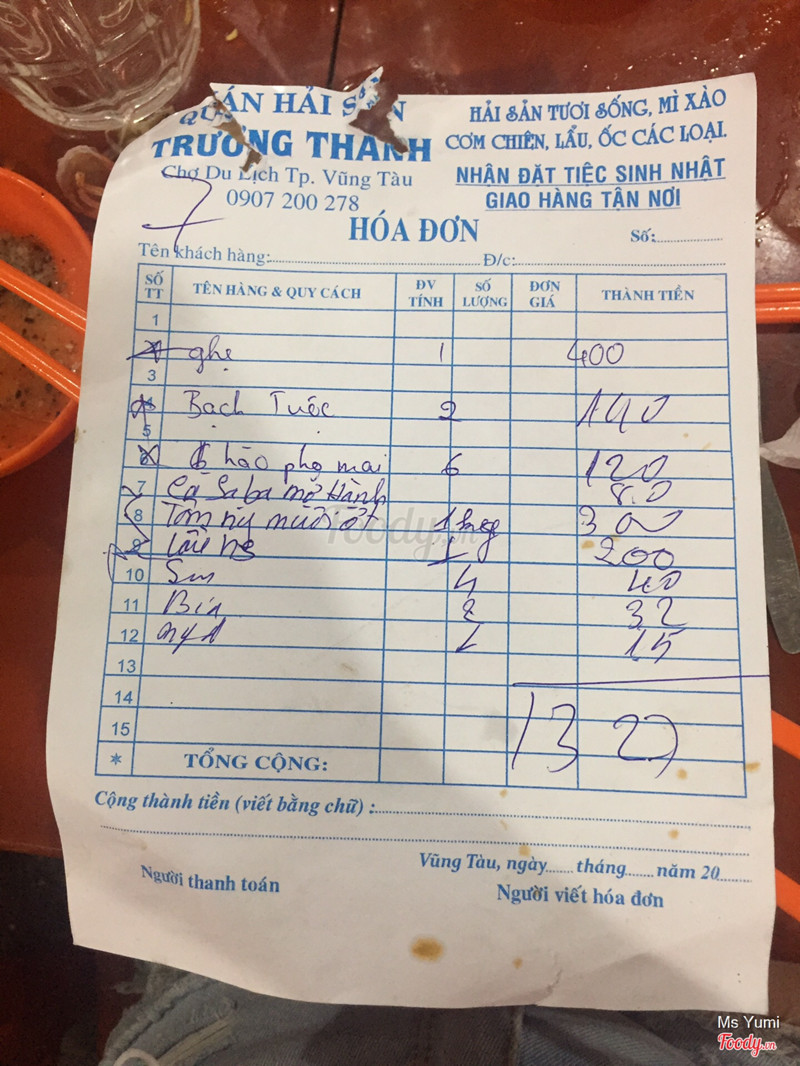 QUÁN HẢI SẢN
TRƯỜNG THANH
Chợ Du Lịch Tp. Vũng Tàu
0907 200 278
HẢI SẢN TƯƠI SỐNG, MÌ XÀO
CƠM CHIÊN, LẨU, ỐC CÁC LOẠI.
NHẬN ĐẶT TIỆC SINH NHẬT
GIAO HÀNG TẬN NƠI
7
HÓA ĐƠN
Số:
Tên khách hàng: Đ/c:
SỐ TT TÊN HÀNG & QUY CÁCH ĐV TÍNH SỐ LƯỢNG ĐƠN GIÁ THÀNH TIỀN
1
ghẹ 1 400
3
4 Bạch Tuộc 2 140
5
6 hào phọ mai 6 120
7 Cá Saba mỡ Hành 80
8 Tôm muối ớt 300
9 1 200
10 4 40
11 Bia 2 32
12 1 15
13
14
15
1327
* TỔNG CỘNG:
Cộng thành tiền (viết bằng chữ) :
Vũng Tàu, ngày tháng năm 20
Người thanh toán Người viết hóa đơn
Foody.vn
Ms Yumi
Foody.vn